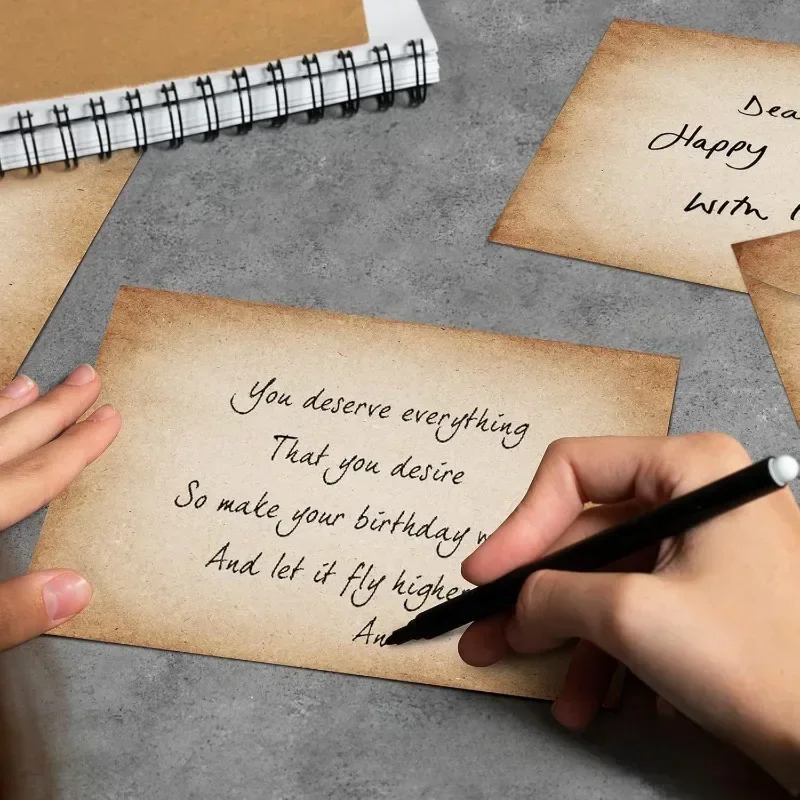 Dea
Happy
With
You deserve everything
That you desire
So make your birthday
And let it fly higher
An